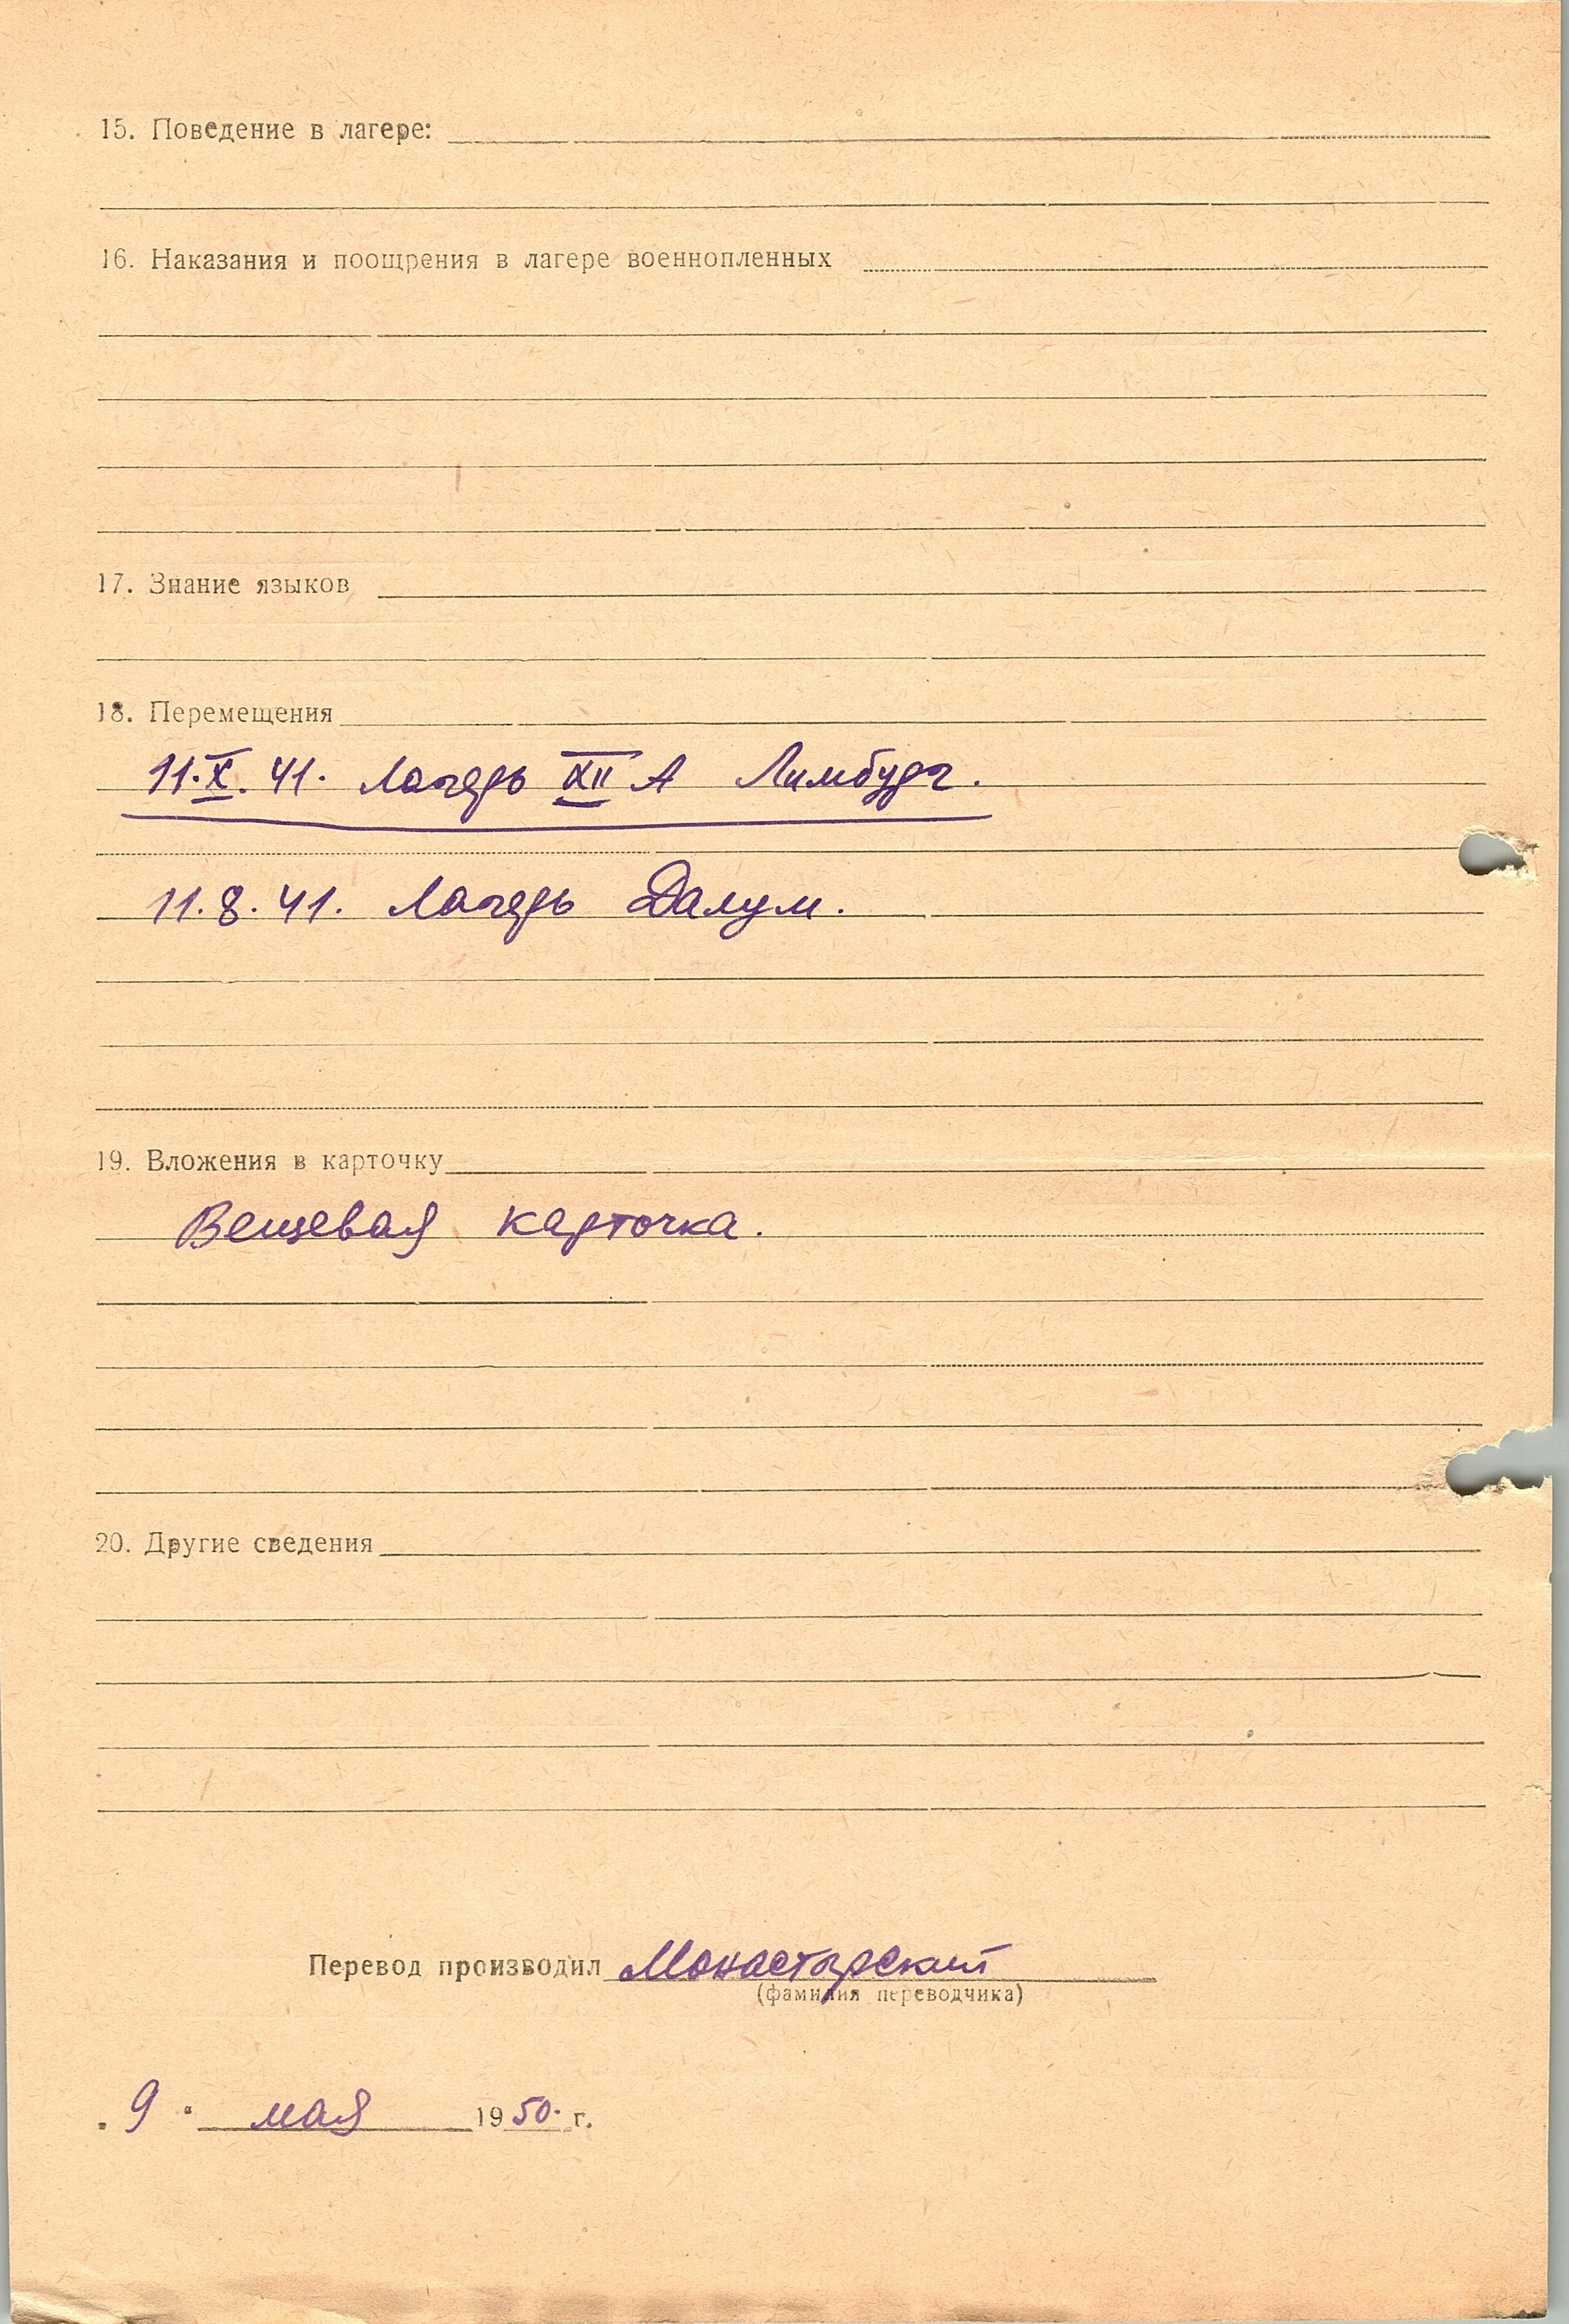 15. Поведение в лагере:
16. Наказания и поощрения в лагере военнопленных
17. Знание языков
18. Перемещения
11.X.41. Лагерь XII А Лимбург.
11.8.41. Лагерь Далум.
19. Вложения в карточку
Вещевая карточка.
20. Другие сведения
Перевод производил Монастырский
(фамилия переводчика)
„9“ мая 1950. г.